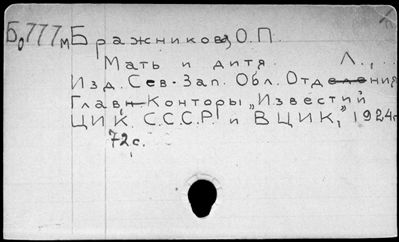 Бо777м Бражникова, О.П.
Мать и дитя. Л.,
Изд. Сев-Зап. Обл. Отделения
Главн. Конторы „Известий
ЦИК С.С.С.Р. и ВЦИК," 1924г.
72с.